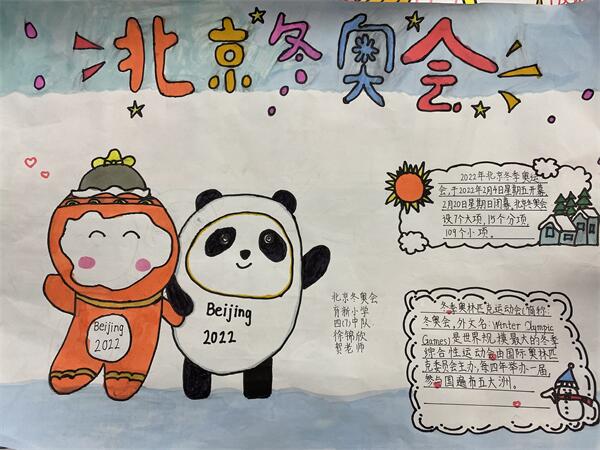 北京冬奥会
2022年北京冬季奥运
会,于2022年2月4日星期五开幕,
2月20日星期日闭幕。北京冬奥会
设7个大项,15个分项,
109个小项。
Beijing
2022
Beijing
2022
北京冬奥会
育新小学
四(7)中队
徐锦欣
贺老师
冬季奥林匹克运动会(简称:
冬奥会,外文名:Winter Olympic
Games)是世界规模最大的冬季
综合性运动会由国际奥林匹
克委员会主办,每四年举办一届,
参与国遍布五大洲。